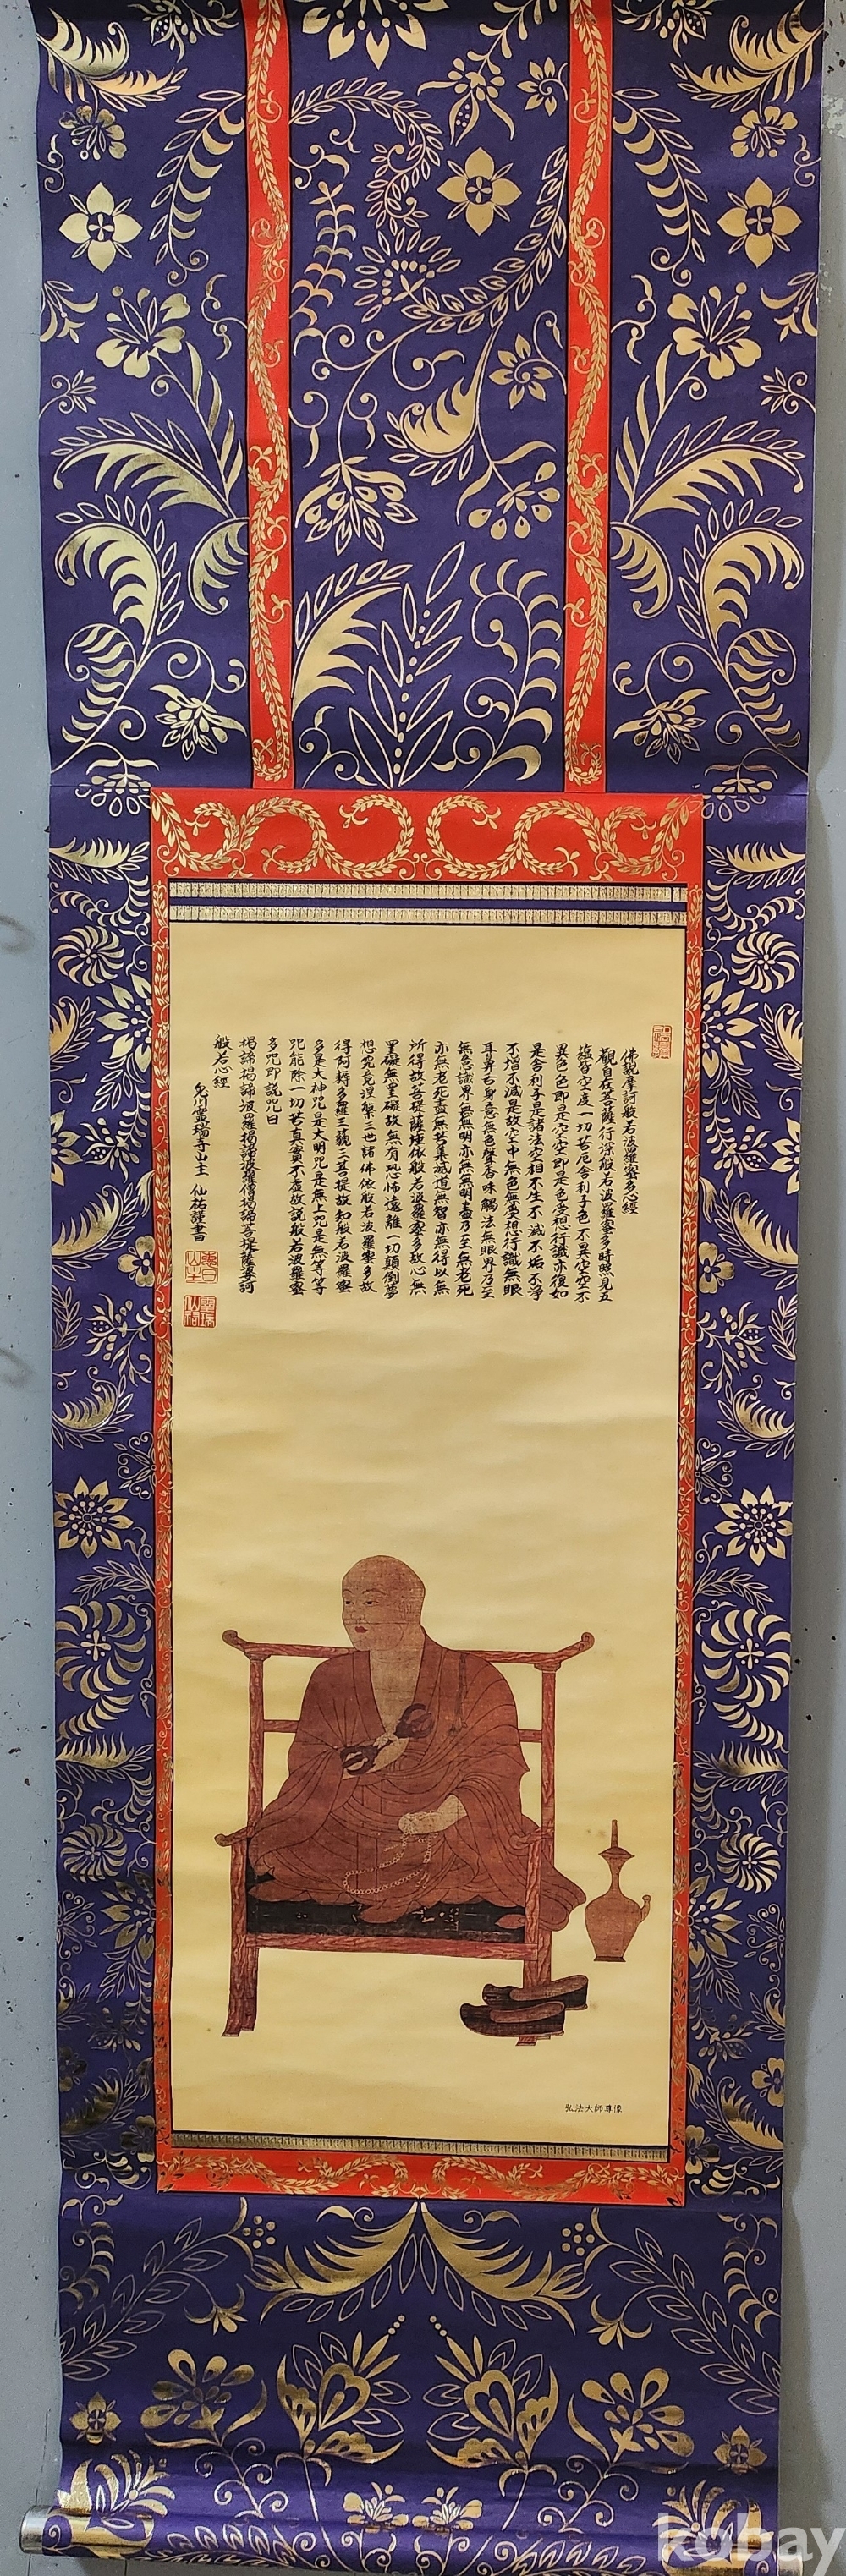 佛說摩訶般若波羅蜜多心經
觀自在菩薩行深般若波羅蜜多時照見五
蘊皆空度一切苦厄舍利子色不異空空不
異色色即是空空即是色受想行識亦復如
是舍利子是諸法空相不生不滅不垢不淨
不增不減是故空中無色無受想行識無眼
耳鼻舌身意無色聲香味觸法無眼界乃至
無意識界無無明亦無無明盡乃至無老死
亦無老死盡無苦集滅道無智亦無得以無
所得故菩提薩埵依般若波羅蜜多故心無
罣礙無罣礙故無有恐怖遠離一切顛倒夢
想究竟涅槃三世諸佛依般若波羅蜜多故
得阿耨多羅三藐三菩提故知般若波羅蜜
多是大神咒是大明咒是無上咒是無等等
咒能除一切苦真實不虛故說般若波羅蜜
多咒即說咒曰
揭諦揭諦波羅揭諦波羅僧揭諦菩提薩婆訶
般若心經
川靈瑞寺山主 仙祐謹書
弘法大師尊像
kobay